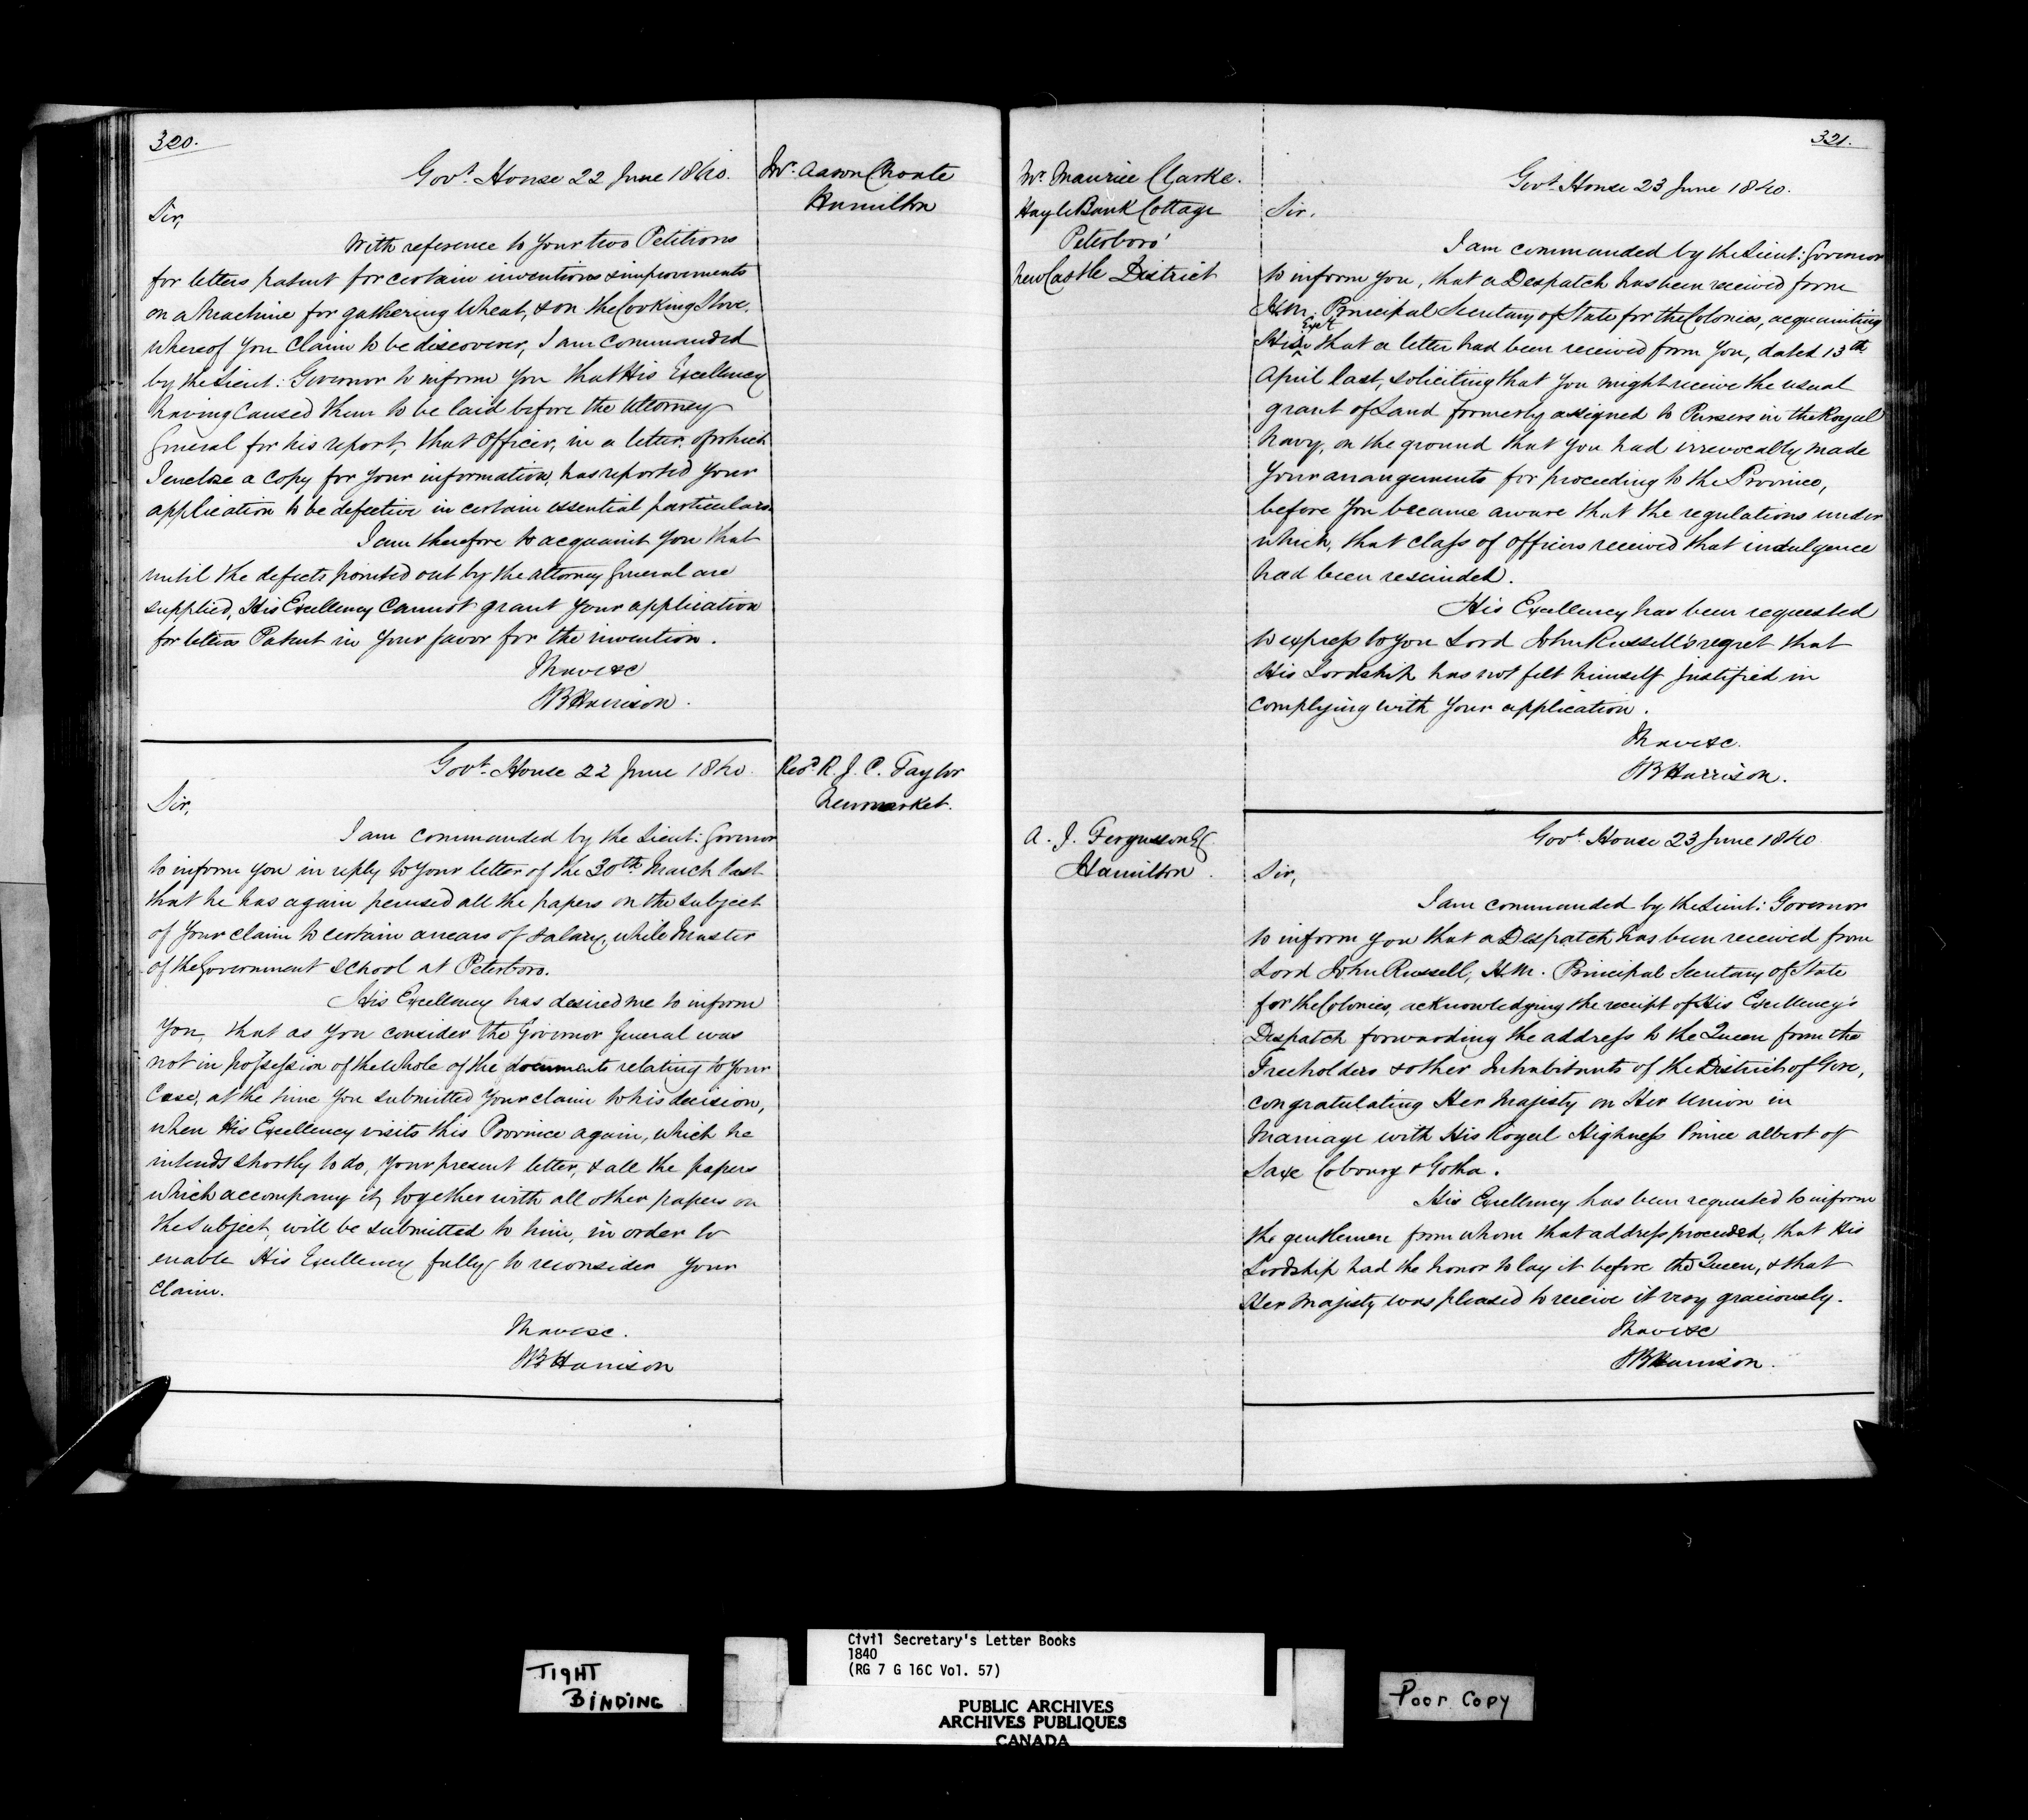 320.
Govt. House 22 June 1840.
Mr. Aaron Choate
Hamilton
Sir,
With reference to your two Petitions
for letters patent for certain inventions & improvements
on a Machine for gathering Wheat, & on the Cooking Stove,
whereof you claim to be discoverer, I am commanded
by the Lieut: Governor to inform you that His Excellency
having caused them to be laid before the Attorney
General for his report, that Officer, in a letter, of which
I enclose a copy for your information, has reported your
application to be defective in certain essential particulars.
I am therefore to acquaint you that
until the defects pointed out by the Attorney General are
supplied, His Excellency cannot grant your application
for letters Patent in your favor for the invention.
I have &c
SB Harrison.
Govt. House 22 June 1840.
Revd. R. J. C. Taylor
Newmarket.
Sir,
I am commanded by the Lieut: Governor
to inform you in reply to your letter of the 30th March last
that he has again perused all the papers on the subject
of your claim to certain arrears of salary, while Master
of the Government School at Peterboro.
His Excellency has desired me to inform
you, that as you consider the Governor General was
not in possession of the whole of the documents relating to your
Case, at the time you submitted your claim to his decision,
when His Excellency visits this Province again, which he
intends shortly to do, your present letter, & all the papers
which accompany it, together with all other papers on
the subject, will be submitted to him, in order to
enable His Excellency fully to reconsider your
claim.
I have &c.
SB Harrison
321.
Mr. Maurice Clarke.
Hayle Bank Cottage
Peterboro'
New Castle District
Govt. House 23 June 1840.
Sir.
I am commanded by the Lieut: Governor
to inform you, that a Despatch has been received from
H.M. Principal Secretary of State for the Colonies, acquainting
His Excy. that a letter had been received from you, dated 13th
April last, soliciting that you might receive the usual
grant of Land formerly assigned to Pursers in the Royal
Navy, on the ground that you had irrevocably made
your arrangements for proceeding to the Province,
before you became aware that the regulations under
which, that class of officers received that indulgence
had been rescinded.
His Excellency has been requested
to express to you Lord John Russell's regret that
His Lordship has not felt himself justified in
complying with your application.
I have &c.
SB Harrison.
A. J. Fergusson Esq
Hamilton.
Govt. House 23 June 1840
Sir,
I am commanded by the Lieut: Governor
to inform you that a Despatch has been received from
Lord John Russell, H.M. Principal Secretary of State
for the Colonies, acknowledging the receipt of His Excellency's
Despatch forwarding the address to the Queen from the
Freeholders & other Inhabitants of the District of Gore,
congratulating Her Majesty on Her Union in
Marriage with His Royal Highness Prince Albert of
Saxe Cobourg & Gotha.
His Excellency has been requested to inform
the gentlemen from whom that address proceeded, that His
Lordship had the honor to lay it before the Queen, & that
Her Majesty was pleased to receive it very graciously.
I have &c
SB Harrison.
TIGHT
BINDING
Civil Secretary's Letter Books
1840
(RG 7 G 16C Vol. 57)
PUBLIC ARCHIVES
ARCHIVES PUBLIQUES
CANADA
Poor Copy